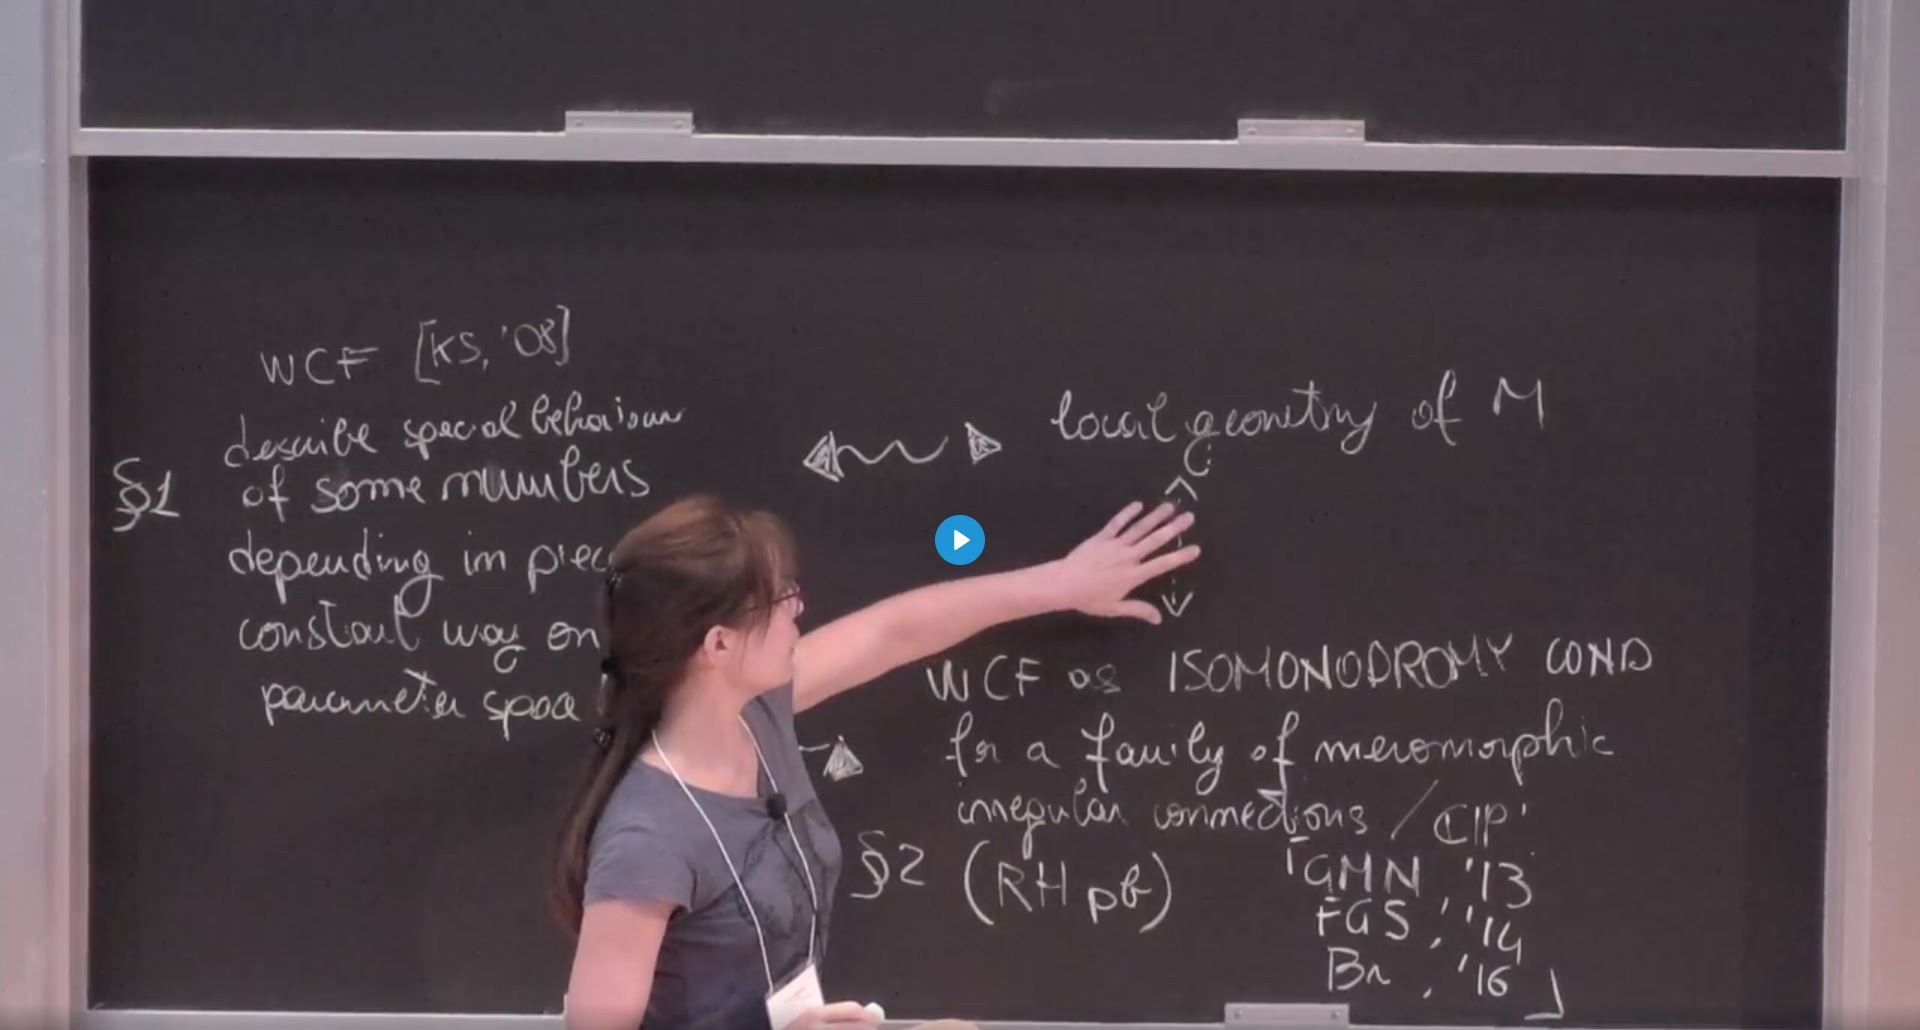 WCF [KS, '08]
describe special behaviour
§1 of some numbers
depending in piec
constant way on
parameter space
local geometry of M
WCF as ISOMONODROMY COND
for a family of meromorphic
irregular connections / CIP'
§2 (RH pb)
[GMN, '13
FGS, '14
Br, '16]